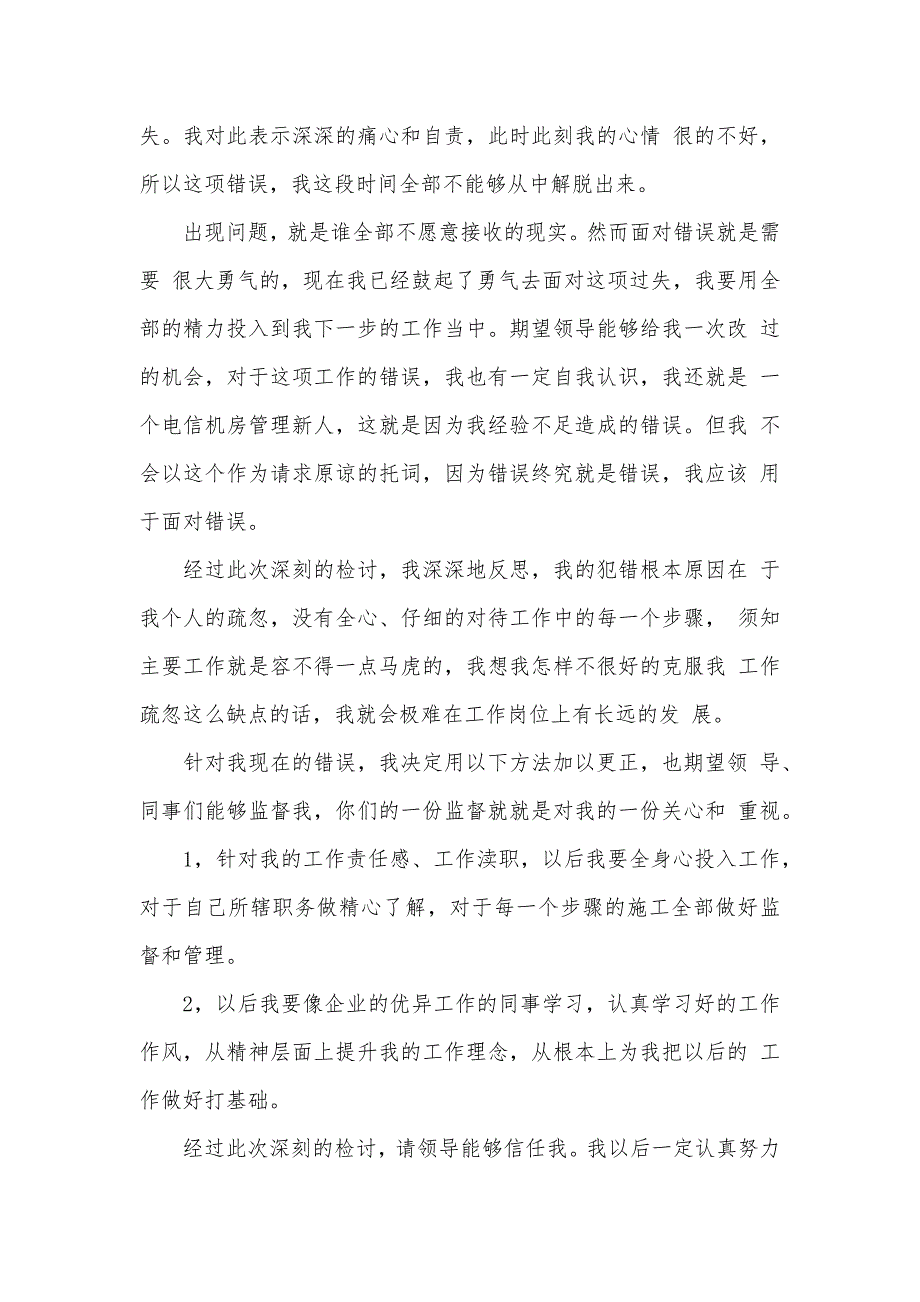 失。我对此表示深深的痛心和自责，此时此刻我的心情 很的不好，
所以这项错误，我这段时间全部不能够从中解脱出来。
出现问题，就是谁全部不愿意接收的现实。然而面对错误就是需
要 很大勇气的，现在我已经鼓起了勇气去面对这项过失，我要用全
部的精力投入到我下一步的工作当中。期望领导能够给我一次改 过
的机会，对于这项工作的错误，我也有一定自我认识，我还就是 一
个电信机房管理新人，这就是因为我经验不足造成的错误。但我 不
会以这个作为请求原谅的托词，因为错误终究就是错误，我应该 用
于面对错误。
经过此次深刻的检讨，我深深地反思，我的犯错根本原因在 于
我个人的疏忽，没有全心、仔细的对待工作中的每一个步骤， 须知
主要工作就是容不得一点马虎的，我想我怎样不很好的克服我 工作
疏忽这么缺点的话，我就会极难在工作岗位上有长远的发 展。
针对我现在的错误，我决定用以下方法加以更正，也期望领 导、
同事们能够监督我，你们的一份监督就就是对我的一份关心和 重视。
1，针对我的工作责任感、工作渎职，以后我要全身心投入工作，
对于自己所辖职务做精心了解，对于每一个步骤的施工全部做好监
督和管理。
2，以后我要像企业的优异工作的同事学习，认真学习好的工作
作风，从精神层面上提升我的工作理念，从根本上为我把以后的 工
作做好打基础。
经过此次深刻的检讨，请领导能够信任我。我以后一定认真努力